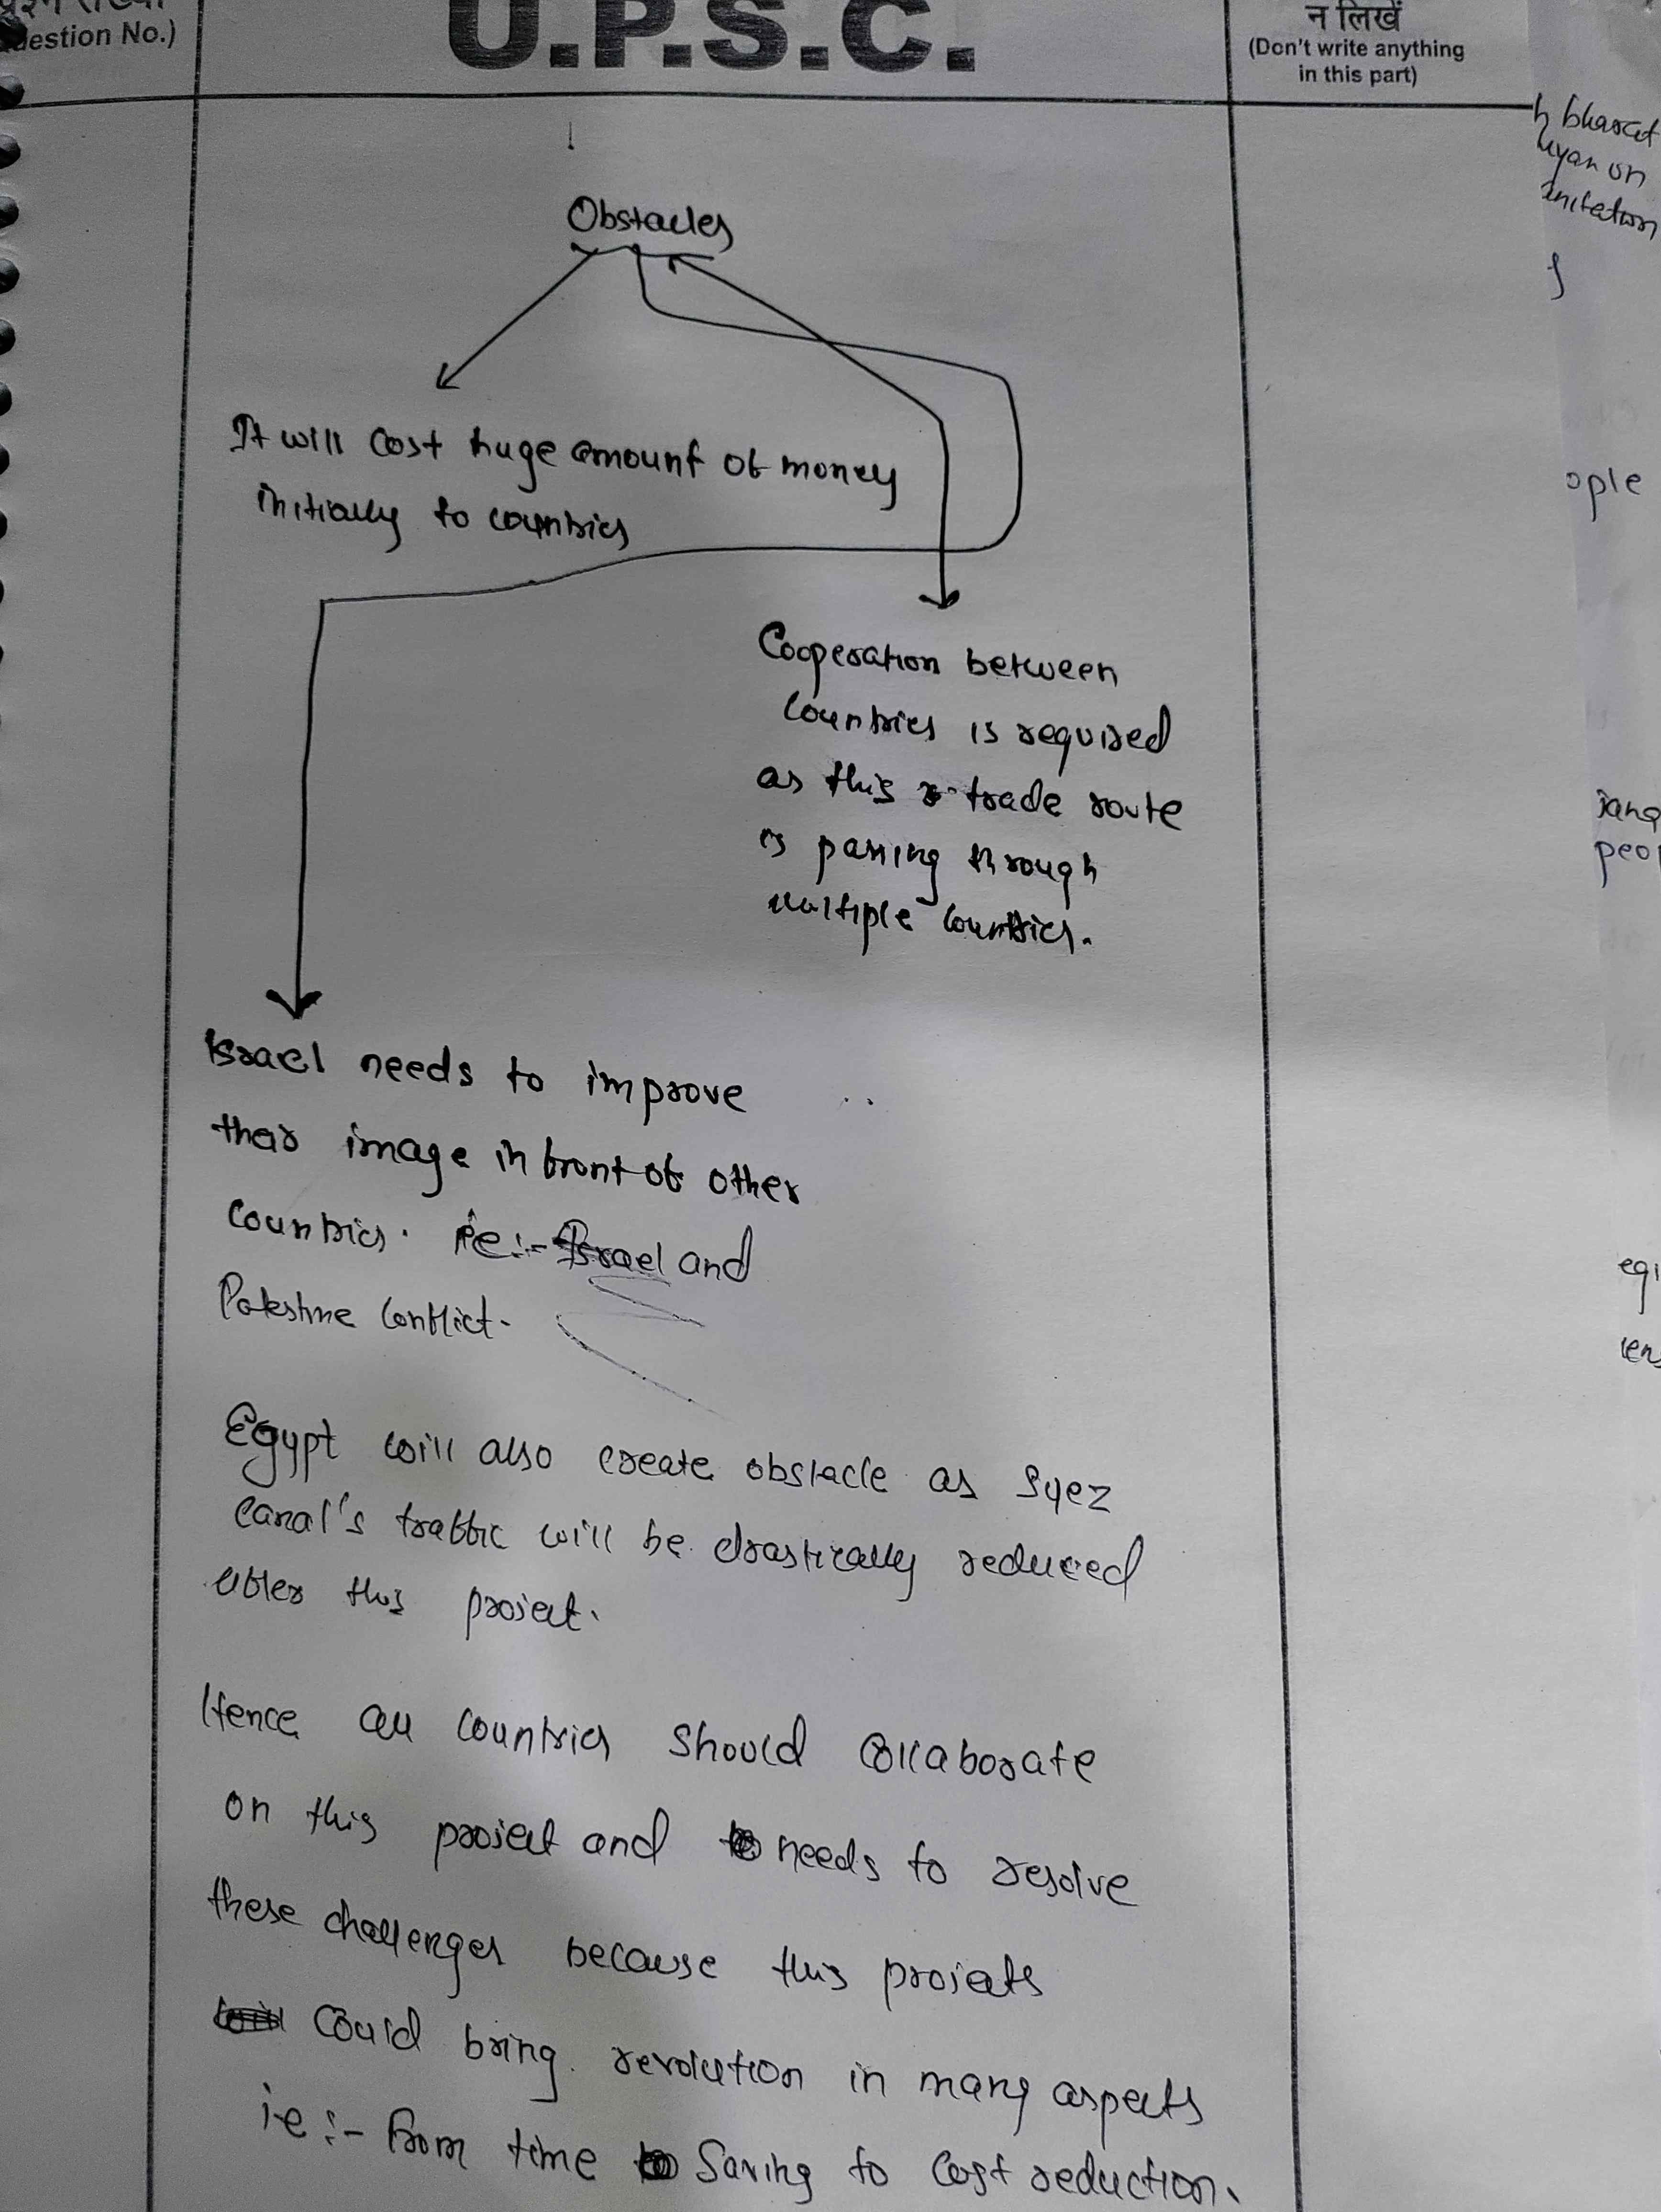 (Question No.)
U.P.S.C.
न लिखें
(Don't write anything
in this part)
Obstacles
It will cost huge amount of money
initially to countries
Cooperation between
countries is required
as this trade route
is passing through
multiple countries.
Israel needs to improve
their image in front of other
countries. ie :- Israel and
Palestine conflict.
Egypt will also create obstacle as Suez
canal's traffic will be drastically reduced
after this project.
Hence all countries should collaborate
on this project and needs to resolve
these challenges because this projects
could bring revolution in many aspects
i.e :- from time saving to cost reduction.
bharat
on
ople